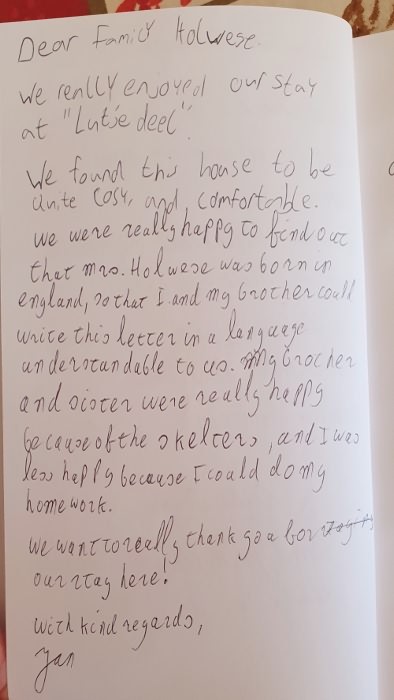 Dear Family Holwese.
We really enjoyed our stay
at "Lutje deel".
We found this house to be
quite cosy, and comfortable.
we were really happy to find out
that mrs. Holwese was born in
england, so that I and my brother could
write this letter in a language
understandable to us. my brother
and sister were really happy
because of the skelters, and I was
less happy because I could do my
homework.
we want to really thank you for
our stay here!
with kind regards,
Jan